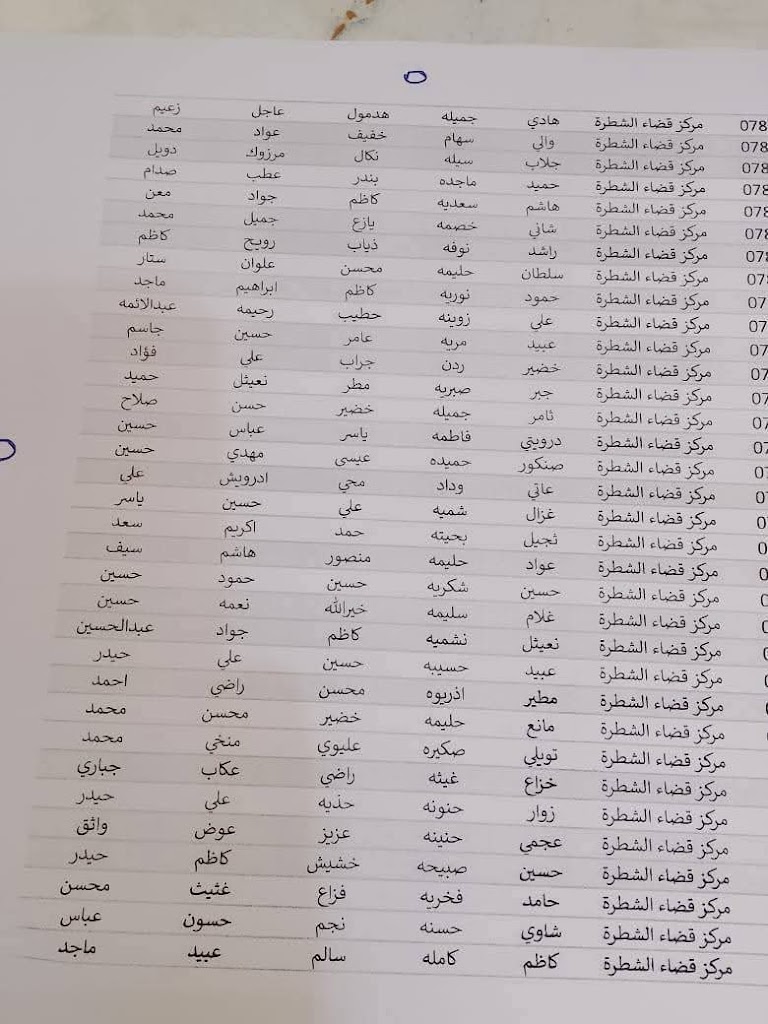 078 مركز قضاء الشطرة هادي جميله هدمول عاجل زعيم
078 مركز قضاء الشطرة والي سهام خفيف عواد محمد
078 مركز قضاء الشطرة جلاب سيله نكال مرزوك دويل
078 مركز قضاء الشطرة حميد ماجده بندر عطب صدام
078 مركز قضاء الشطرة هاشم سعديه كاظم جواد معن
078 مركز قضاء الشطرة شاني خصمه يازع جميل محمد
078 مركز قضاء الشطرة راشد نوفه ذياب رويح كاظم
078 مركز قضاء الشطرة سلطان حليمه محسن علوان ستار
07 مركز قضاء الشطرة حمود نوريه كاظم ابراهيم ماجد
07 مركز قضاء الشطرة علي زوينه حطيب رحيمه عبدالائمه
07 مركز قضاء الشطرة عبيد مريه عامر حسين جاسم
07 مركز قضاء الشطرة خضير ردن جراب علي فؤاد
07 مركز قضاء الشطرة جبر صبريه مطر نعيثل حميد
07 مركز قضاء الشطرة ثامر جميله خضير حسن صلاح
07 مركز قضاء الشطرة درويتي فاطمه ياسر عباس حسين
07 مركز قضاء الشطرة صنكور حميده عيسى مهدي حسين
07 مركز قضاء الشطرة عاتي وداد محي ادرويش علي
0 مركز قضاء الشطرة غزال شميه علي حسين ياسر
0 مركز قضاء الشطرة ثجيل بحيته حمد اكريم سعد
0 مركز قضاء الشطرة عواد حليمه منصور هاشم سيف
0 مركز قضاء الشطرة حسين شكريه حسين حمود حسين
0 مركز قضاء الشطرة غلام سليمه خيرالله نعمه حسين
0 مركز قضاء الشطرة نعيثل نشميه كاظم جواد عبدالحسين
مركز قضاء الشطرة عبيد حسيبه حسين علي حيدر
مركز قضاء الشطرة مطير اذريوه محسن راضي احمد
مركز قضاء الشطرة مانع حليمه خضير محسن محمد
مركز قضاء الشطرة تويلي صكيره عليوي منخي محمد
مركز قضاء الشطرة خزاع غيثه راضي عكاب جباري
مركز قضاء الشطرة زوار حنونه حذيه علي حيدر
مركز قضاء الشطرة عجمي حنينه عزيز عوض واثق
مركز قضاء الشطرة حسين صبيحه خشيش كاظم حيدر
مركز قضاء الشطرة حامد فخريه فزاع غثيث محسن
مركز قضاء الشطرة شاوي حسنه نجم حسون عباس
مركز قضاء الشطرة كاظم كامله سالم عبيد ماجد